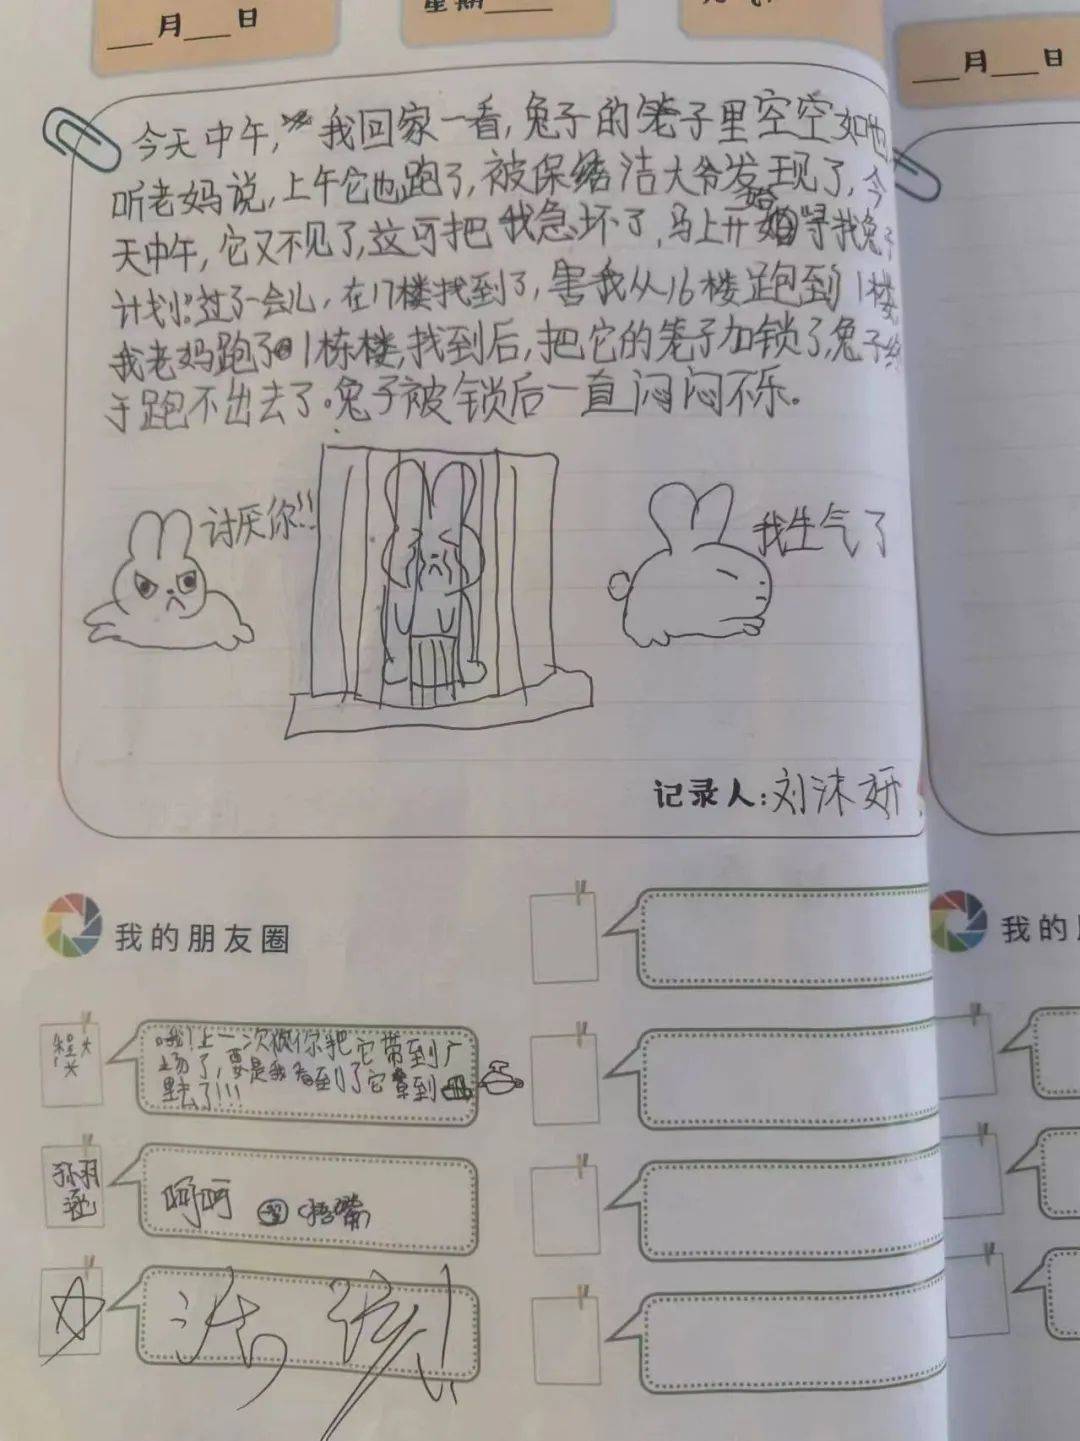 月 日
星期
月 日
今天中午,我回家一看,兔子的笼子里空空如也,
听老妈说,上午它也跑了,被保洁大爷发现了,今
天中午,它又不见了,这可把我急坏了,马上开始寻找兔子
计划。过了一会儿,在17楼找到了,害我从16楼跑到1楼,
我老妈跑了1栋楼,找到后,把它的笼子加锁了,兔子终
于跑不出去了。兔子被锁后一直闷闷不乐。
讨厌你!!
我生气了
记录人:刘沫妍
我的朋友圈
我的
哦!上一次你把它带到广
场了,要是我看到了它拿到
里去了!!!
呵呵 (捂嘴)
活该!